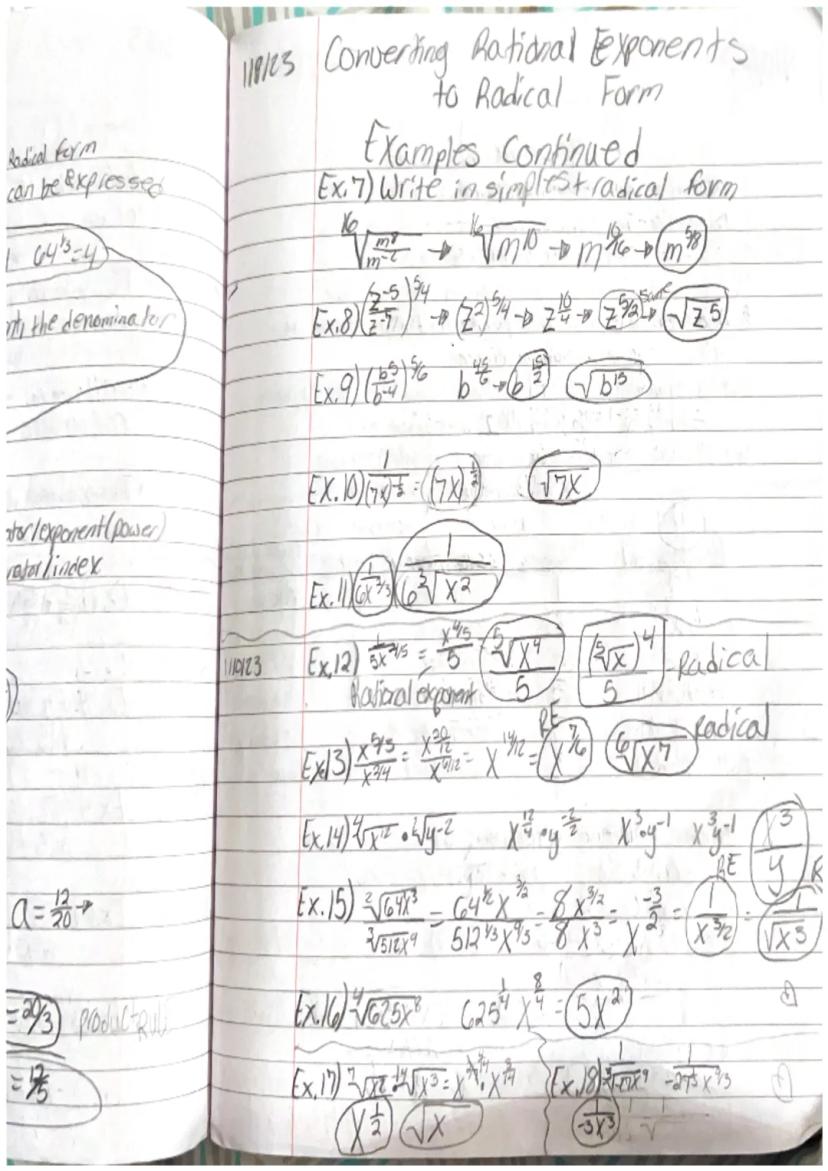 Radical form
can be Expressed
64^1/3=4
the denominator
exponent(power)
index
a = 12/20 →
= 20/3 product Rule
= 12/5
1/8/23 Converting Rational Exponents
to Radical Form
Examples Continued
Ex.7) Write in simplest radical form
¹⁶√(m^8/m^-2) → ¹⁶√m^10 → m^10/16 → m^5/8
Ex.8) (z^-5/z^-7)^5/4 → (z^2)^5/4 → z^10/4 → z^5/2 same → √z^5
Ex.9) (b^5/b^-4)^5/6 b^45/6 → b^15/2 √b^15
Ex.10) 1/(7x)^-1/2 = (7x)^1/2 √7x
Ex.11) 1/6x^2/3 1/6∛x^2
1/10/23 Ex.12) 1/5x^-4/5 = x^4/5/5 = ⁵√x^4/5 (⁵√x)^4/5 - Radical
Rational exponent
RE Radical
Ex.13) x^5/3/x^2/4 = x^20/12/x^6/12 = x^14/12 = x^7/6 ⁶√x^7
Ex.14) ⁴√x^12 • ²√y^-2 x^12/4 • y^-2/2 x^3 • y^-1 x^3y^-1 x^3/y
RE R
Ex.15) ²√64x^3/∛512x^9 = 64^1/2 x^3/2/512^1/3 x^9/3 = 8x^3/2/8x^3 = x^-3/2 = 1/x^3/2 = 1/√x^3
Ex.16) ⁴√625x^8 625^1/4 x^8/4 = 5x^2
Ex.17) ⁷√x^2 • ¹⁴√x^3 = x^4/14 • x^3/14 Ex.18) 1/∛-27x^9 1/-27^1/3 x^9/3
x^1/2 √x 1/-3x^3